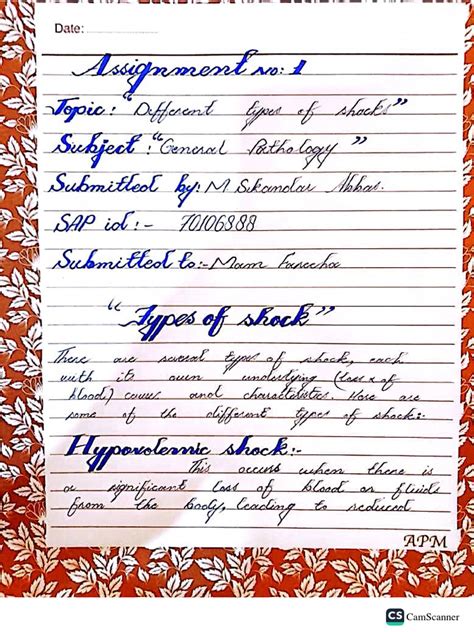 Date:
Assignment No: 1
Topic: "Different types of shocks"
Subject: "General Pathology"
Submitted by: M Sikandar Abbas.
SAP id:- 70106888
Submitted to:- Mam Fareeha
"Types of shock"
There are several types of shock, each
with its own underlying (loss of
blood) causes and characteristics. Here are
some of the different types of shocks:-
Hypovolemic shock:-
This occurs when there is
a significant loss of blood or fluids
from the body, leading to reduced
APM
CS CamScanner